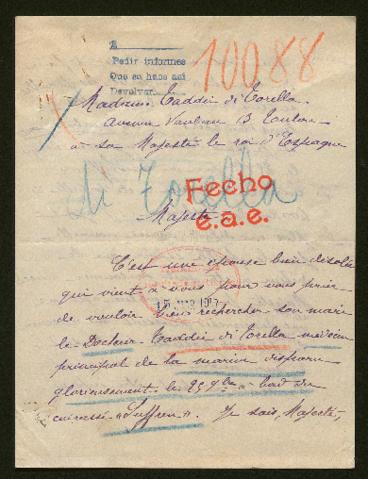 2
Pedir informes
Que se hace así
Devolver
10088
Madame Taddéi di Torella
avenue Vauban 13 Toulon
a Sa Majesté le roi d'Espagne
di Torella
Fecho
e.a.e.
Majesté
C'est une épouse bien désolée
qui vient à vous pour vous prier
de vouloir bien rechercher son mari
le Docteur Taddéi di Torella médecin
principal de la marine disparu
glorieusement le 25 9bre à bord du
cuirassé "Suffren". Je sais, Majesté,